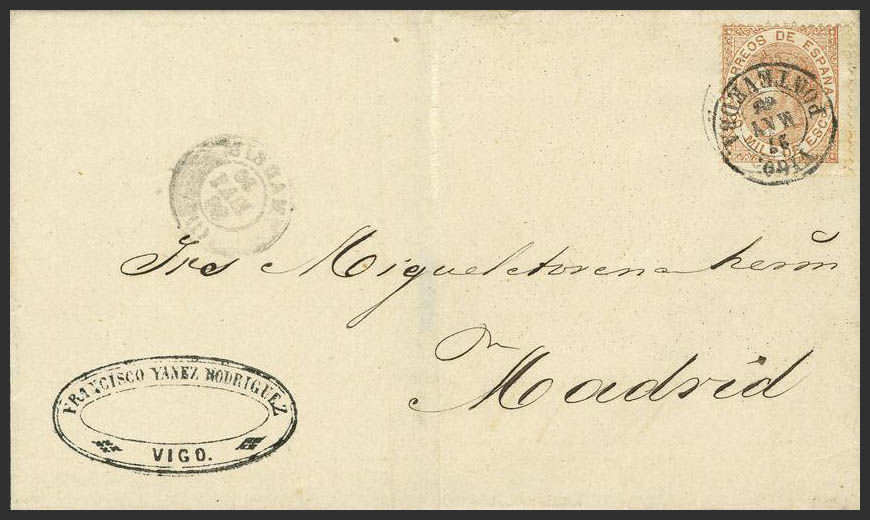 CORREOS DE ESPAÑA
MIL ESCO
PONTEVEDRA
MAY
VIGO.
Srs Miguel Arena herm
Madrid
FRANCISCO YAÑEZ RODRIGUEZ
VIGO.